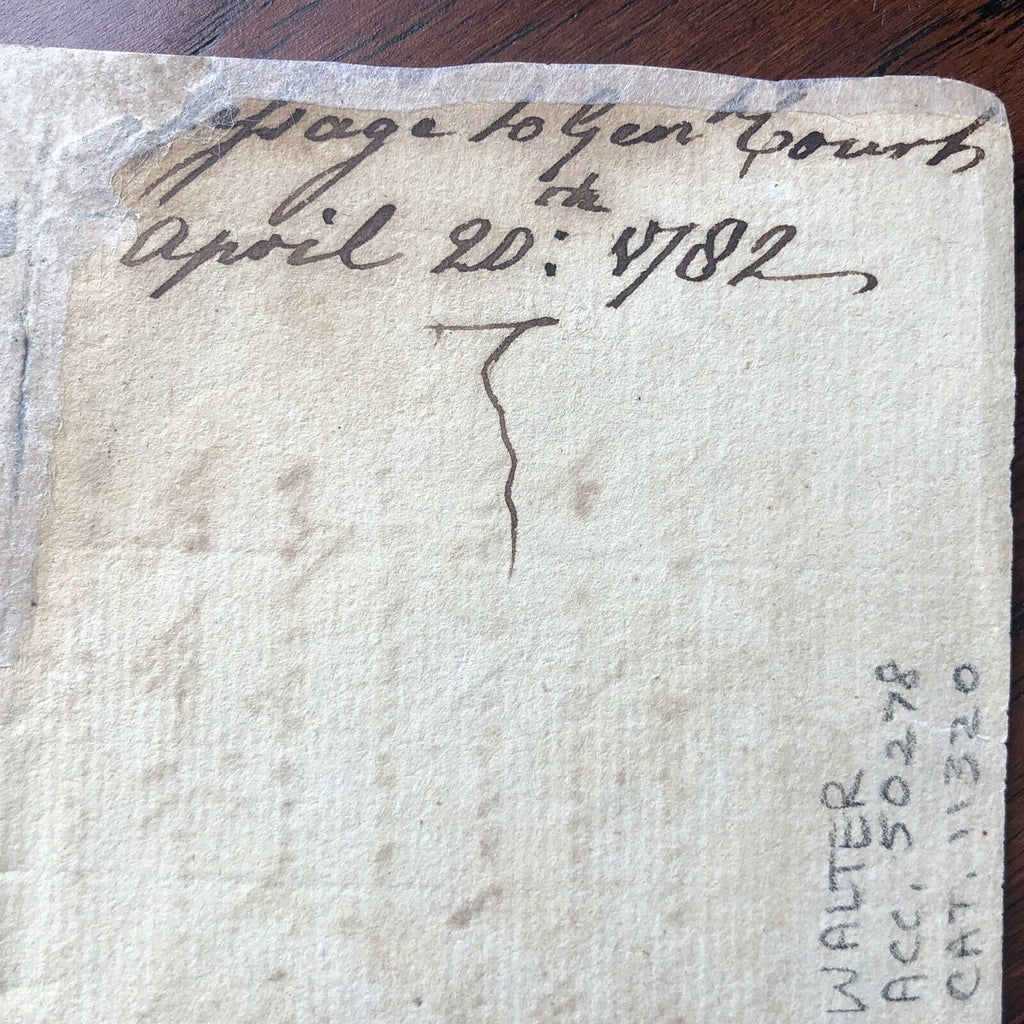 ſsage to Genˡ Court
April 20th: 1782
WALTER
ACC. 50278
CAT. 11320